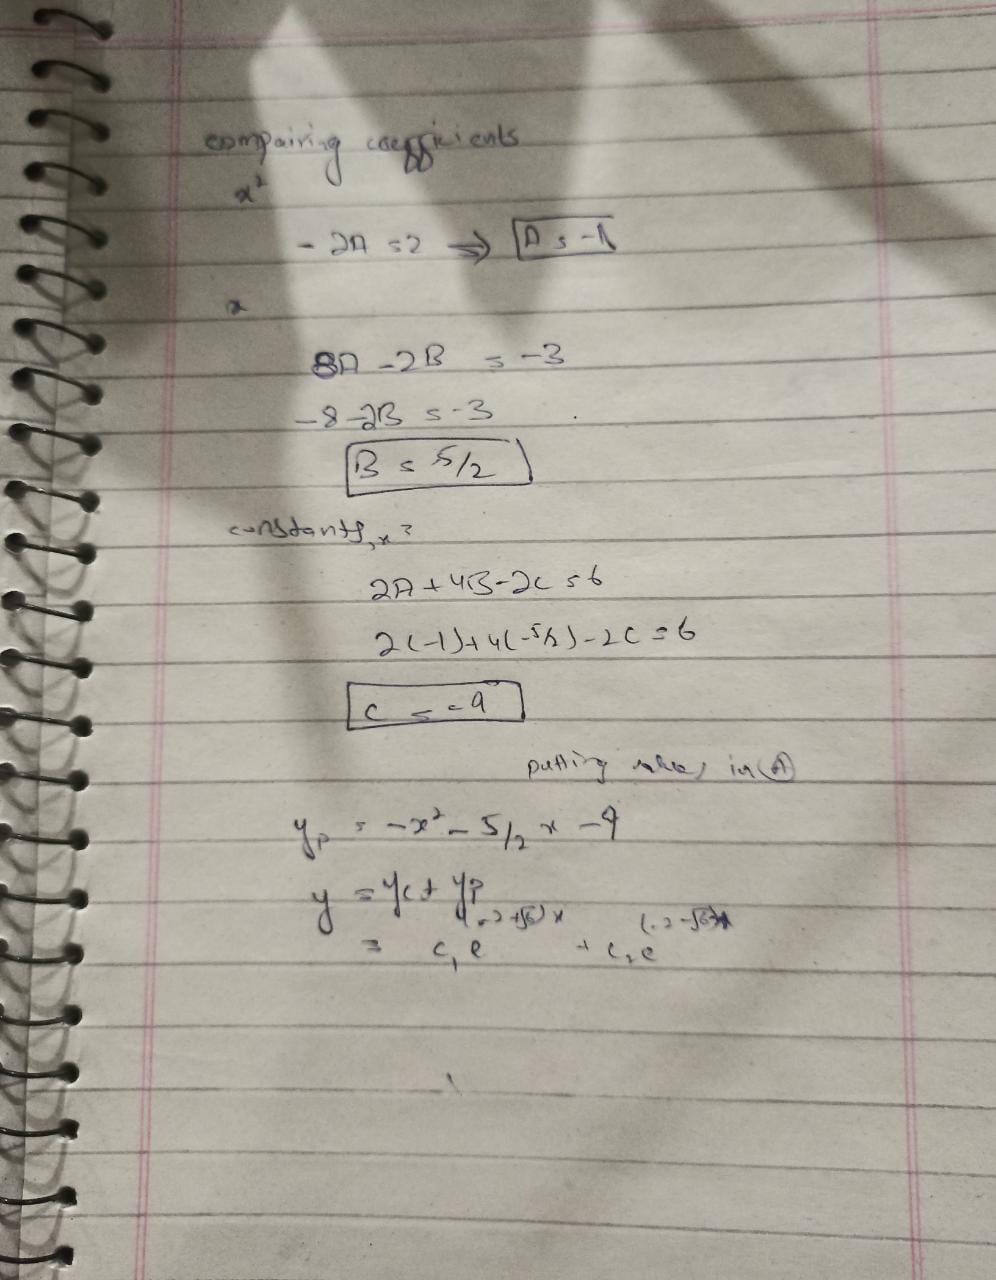 compairing coefficients
x²
- 2A = 2 ⇒ A = -1
x
8A - 2B = -3
-8 - 2B = -3
B = 5/2
constants, x⁰
2A + 4B - 2C = 6
2(-1) + 4(-5/2) - 2C = 6
C = -9
putting values in (A)
yp = -x² - 5/2 x - 9
y = yc + yp
= c₁e^(-2+√6)x + c₂e^(-2-√6)x